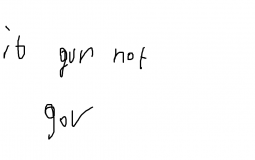 it gur not
gov